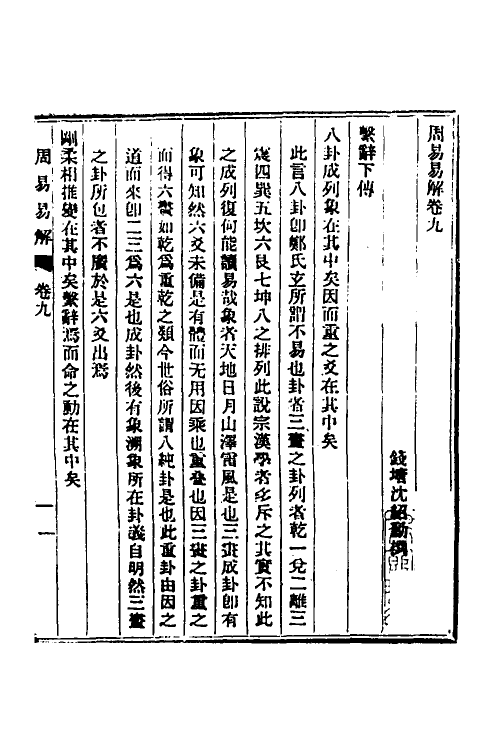 周易易解卷九
錢塘沈紹勳撰
繫辭下傳
八卦成列象在其中矣因而重之爻在其中矣
此言八卦卽鄭氏玄所謂不易也卦者三畫之卦列者乾一兌二離三
震四巽五坎六艮七坤八之排列此說宗漢學者多斥之其實不知此
之成列復何能讀易哉象者天地日月山澤雷風是也三畫成卦卽有
象可知然六爻未備是有體而无用因乘也重叠也因三畫之卦重之
而得六畫如乾爲重乾之類今世俗所謂八純卦是也此重卦由因之
道而來卽二三爲六是也成卦然後有象溯象所在卦義自明然三畫
之卦所包者不廣於是六爻出焉
剛柔相推變在其中矣繫辭焉而命之動在其中矣
周易易解 卷九 一